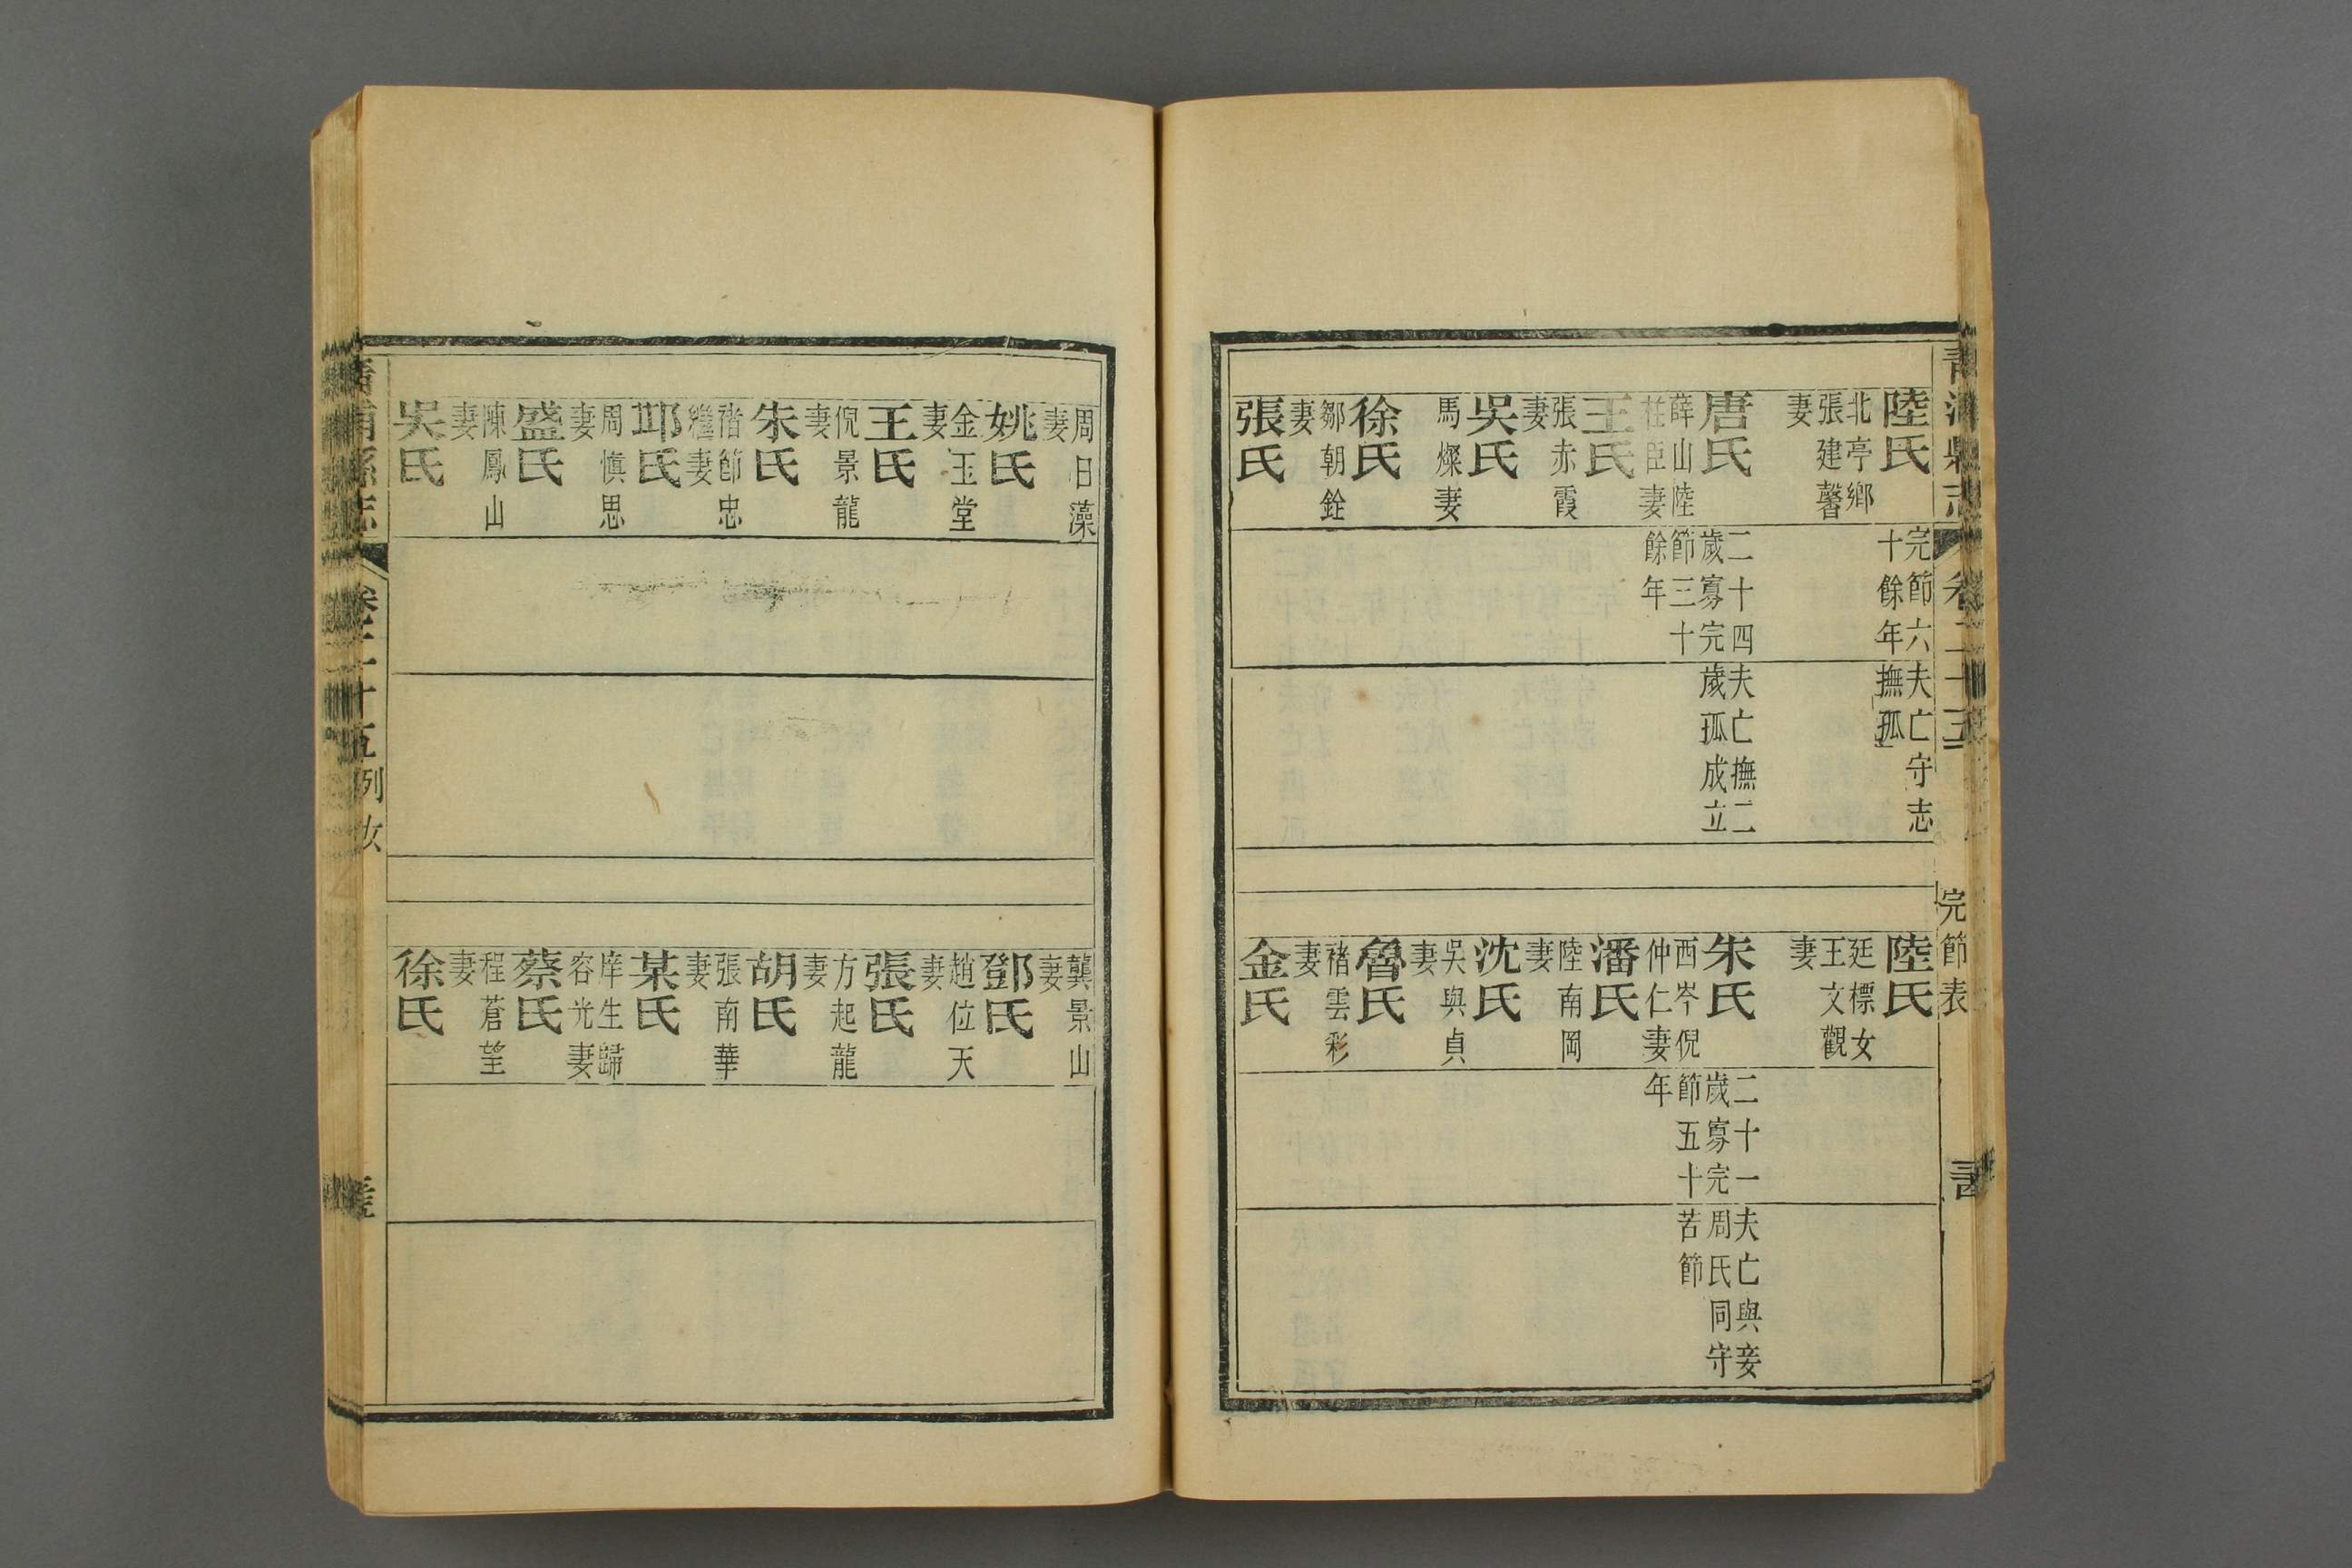 青浦縣志
卷二十五
完節表
陸氏
北亭鄉
張建馨
妻
完節六
十餘年
夫亡守志
撫孤
唐氏
薛山陸
柱臣妻
二十四
歲寡完
節三十
餘年
夫亡撫二
歲孤成立
王氏
張赤霞
妻
吳氏
馬燦妻
徐氏
鄒朝銓
妻
張氏
陸氏
廷標女
王文觀
妻
朱氏
西岑倪
仲仁妻
二十一
歲寡完
節五十
年
夫亡與妾
周氏同守
苦節
潘氏
陸南岡
妻
沈氏
吳與貞
妻
魯氏
褚雲彩
妻
金氏
周日藻
妻
姚氏
金玉堂
妻
王氏
倪景龍
妻
朱氏
節忠
繼妻
邛氏
周慎思
妻
盛氏
陳鳳山
妻
吳氏
龔景山
妻
鄧氏
趙位天
妻
張氏
方起龍
妻
胡氏
張南華
妻
某氏
庠生歸
容光妻
蔡氏
程蒼望
妻
徐氏
青浦縣志
卷二十五
列女